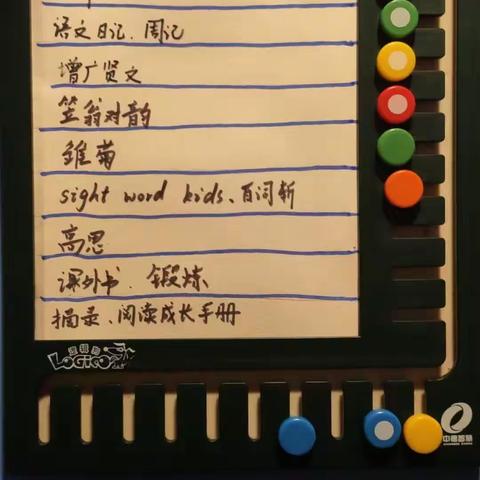 语文日记、周记
增广贤文
笠翁对韵
雏菊
sight word kids、百词斩
高思
课外书、锻炼
摘录、阅读成长手册
逻辑狗
LOGICO